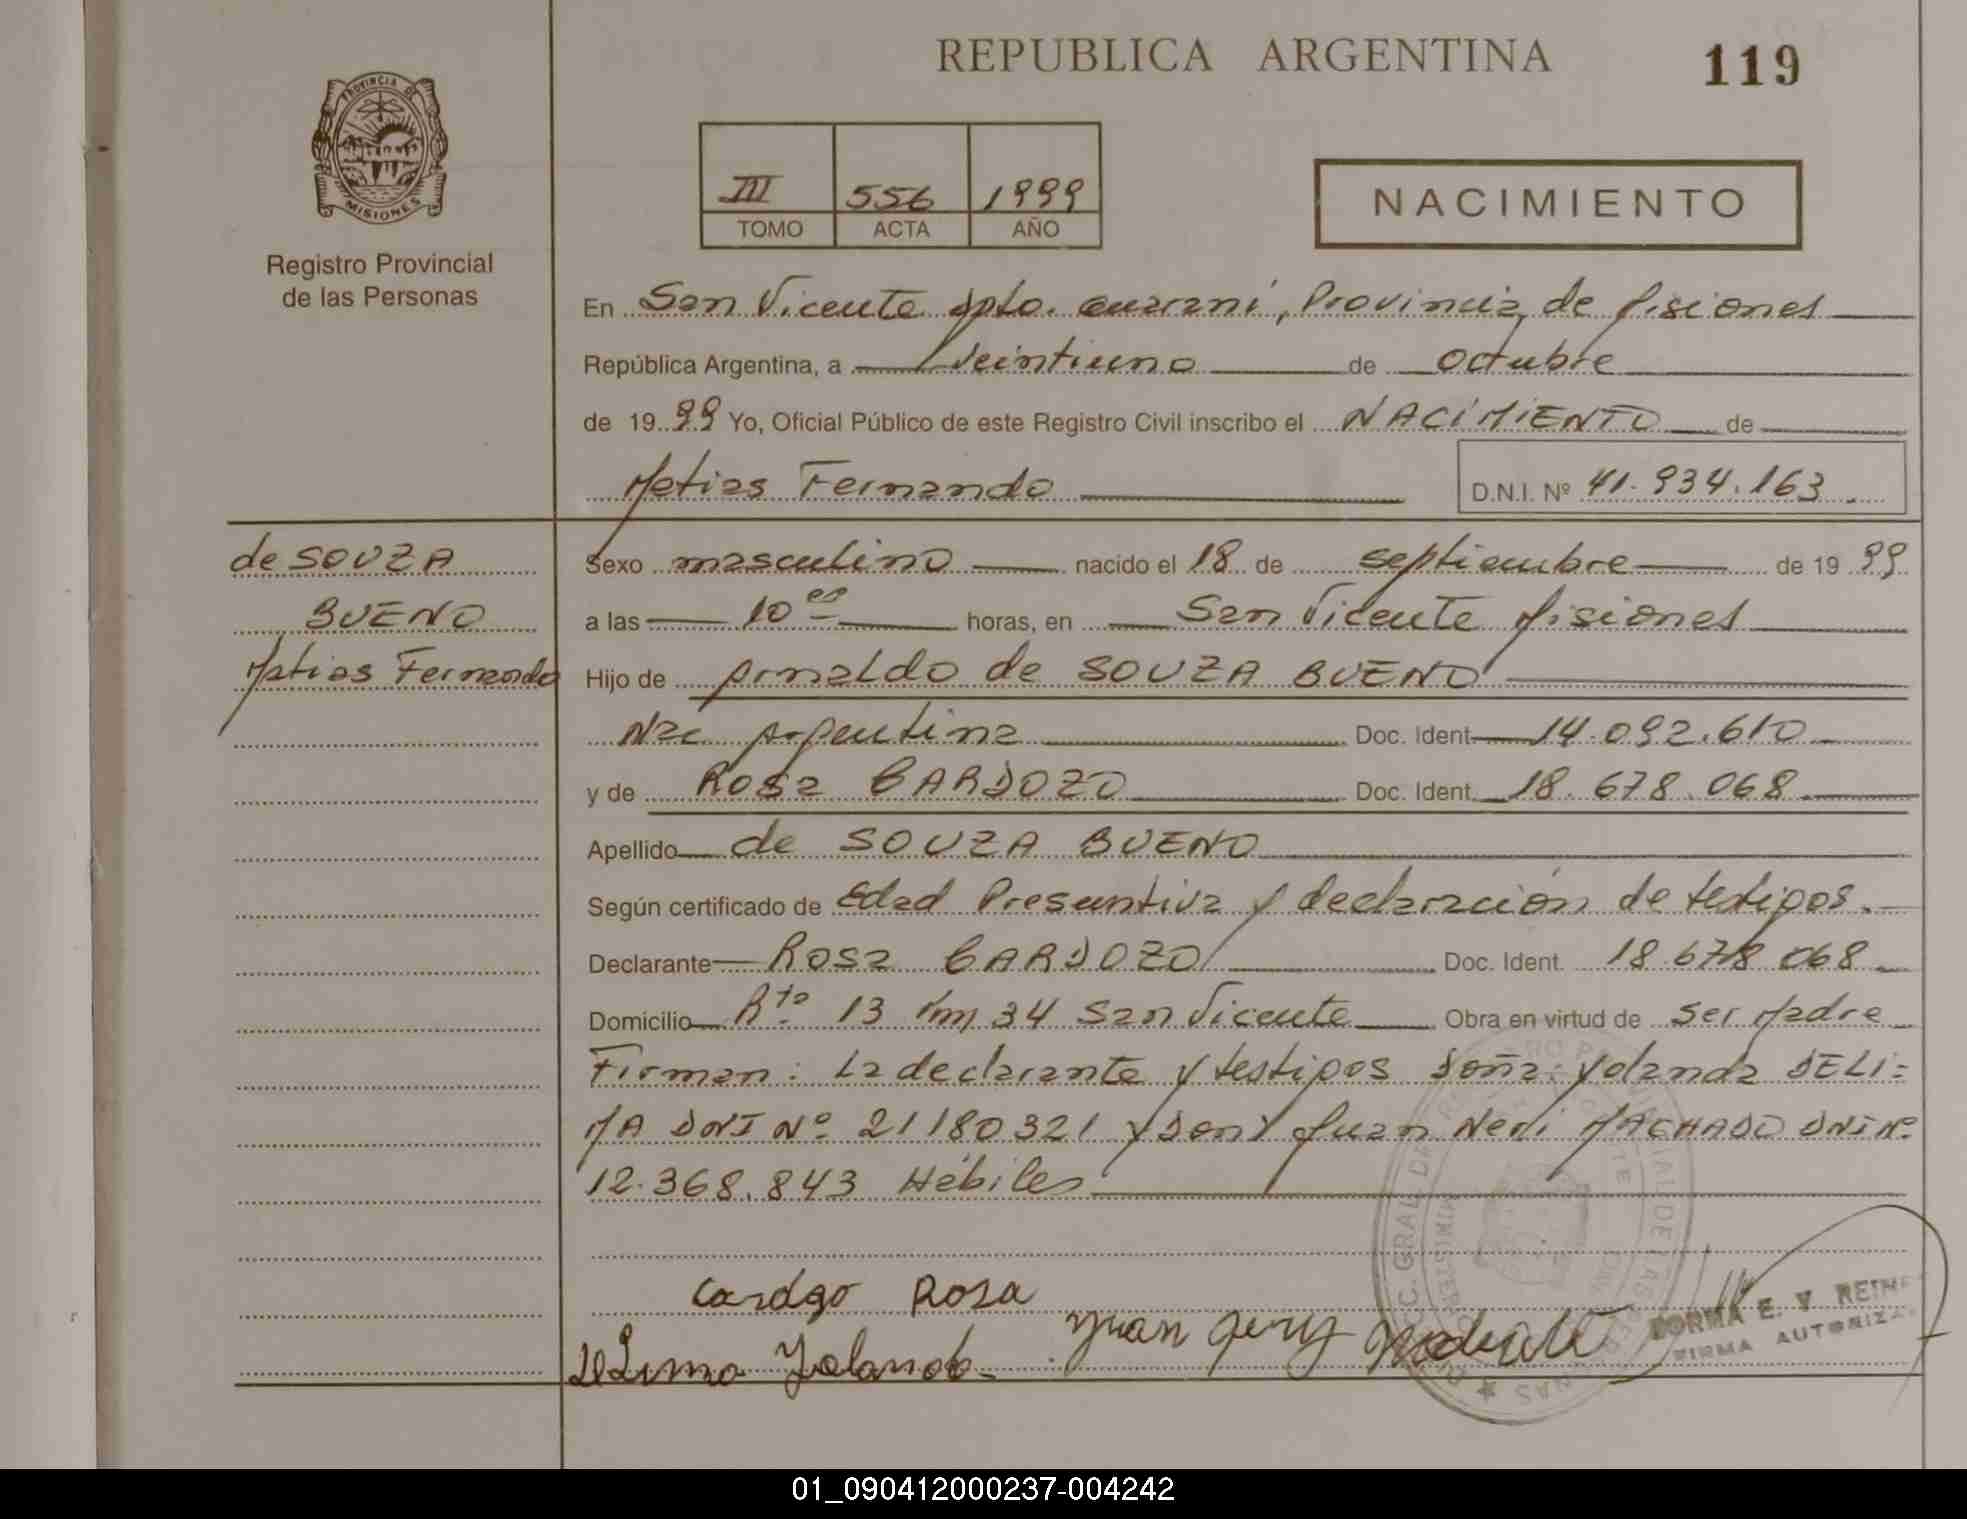 REPUBLICA ARGENTINA
119
PROVINCIA DE
MISIONES
Registro Provincial
de las Personas
III 556 1999
TOMO ACTA AÑO
NACIMIENTO
En San Vicente dpto. Guaraní, Provincia de Misiones
República Argentina, a veintiuno de octubre
de 1999 Yo, Oficial Público de este Registro Civil inscribo el NACIMIENTO de
Matias Fernando
D.N.I. Nº 41.934.163
de SOUZA
BUENO
Matias Fernando
Sexo masculino nacido el 18 de septiembre de 1999
a las 10 horas, en San Vicente Misiones
Hijo de Arnaldo de SOUZA BUENO
Nac Argentina Doc. Ident. 14.092.610
y de Rosa CARDOZO Doc. Ident. 18.678.068
Apellido de SOUZA BUENO
Según certificado de Edad Presuntiva y declaración de testigos.
Declarante Rosa CARDOZO Doc. Ident. 18.678.068
Domicilio Rta 13 Km 34 San Vicente Obra en virtud de ser Madre
Firman: La declarante y testigos Doña: Yolanda DELI=
MA DNI Nº 21180321 y Don Juan Neri MACHADO DNI Nº
12.368.843 Hábiles
Rosa
De Lima Yolanda
Juan
NORMA E. V
FIRMA AUTORIZA
01_090412000237-004242